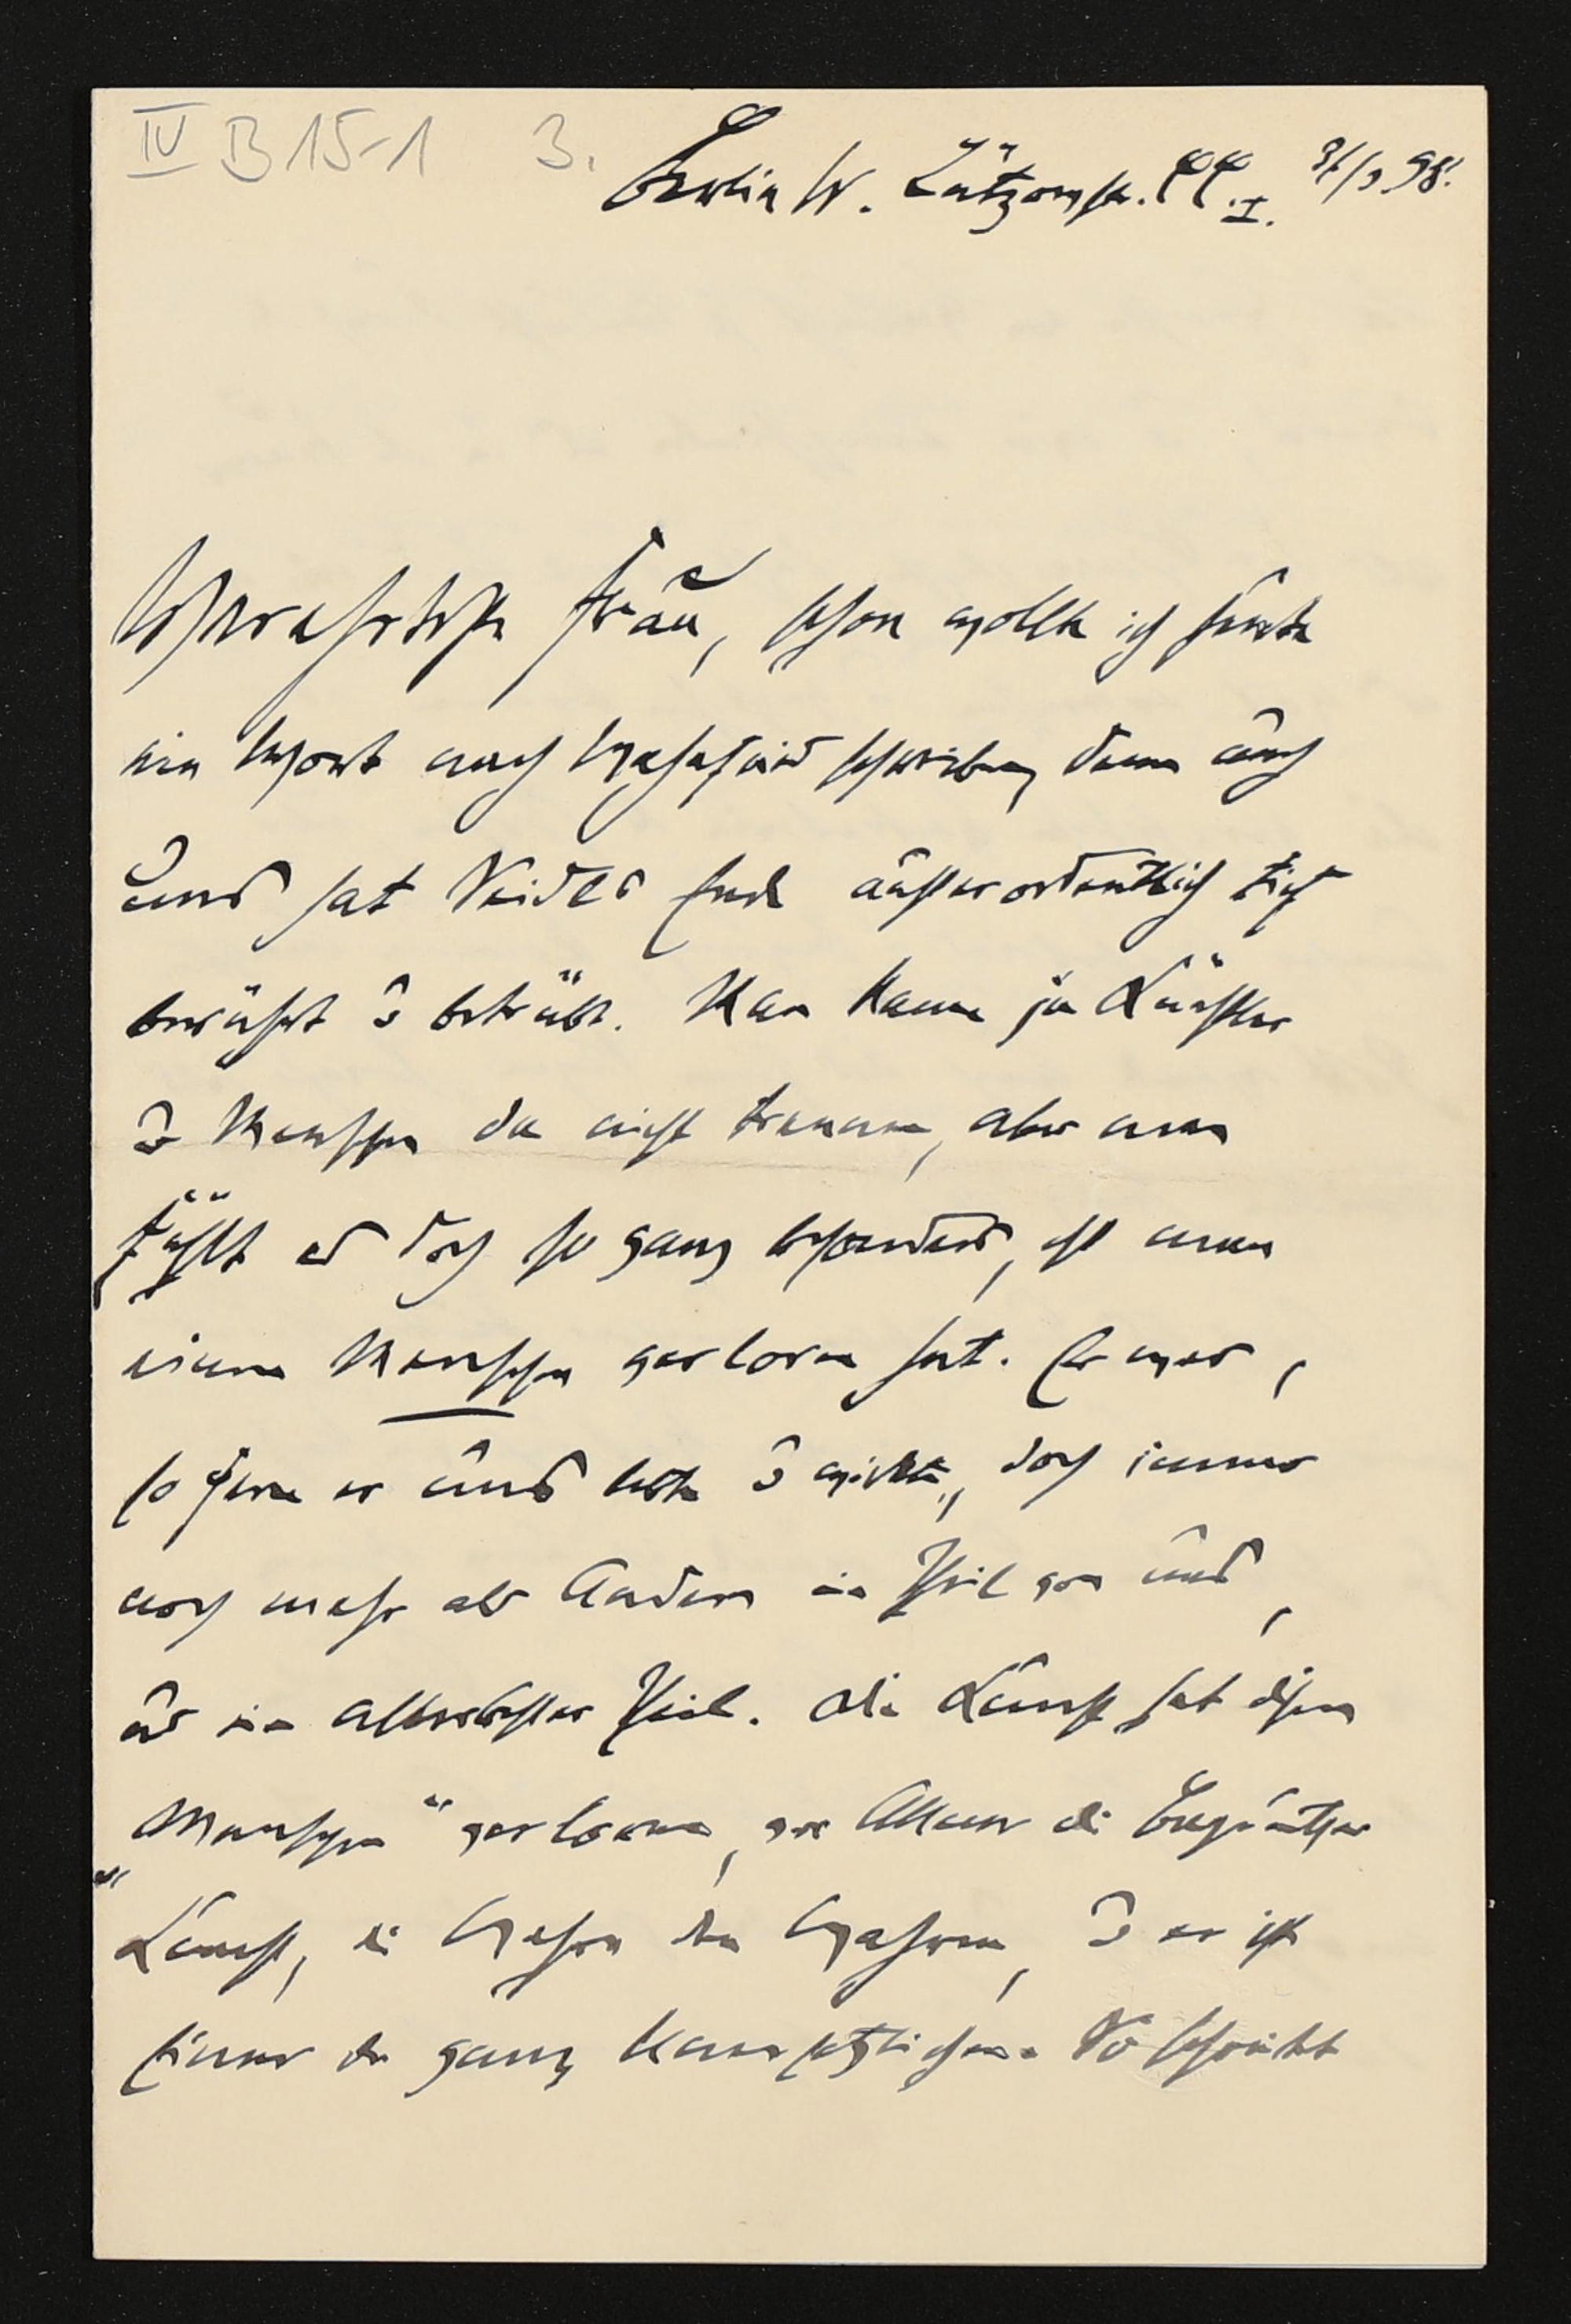 IV B 15-1 3.
Berlin W. Lützowstr. 44.I. 31/3.98.
Wertheste Frau, schon wollte ich heute
ein Wort nach Wahnfried schreiben, denn auch
uns hat Ende ausserordentlich tief
berührt u betrübt. Man kann ja Künstler
u Menschen da nicht trennen, aber man
fühlt es doch so ganz besonders, ob man
einen Menschen verloren hat. Er war,
so fern er uns lebte u wirkte, doch immer
noch mehr als Andern ein Theil von uns,
u ein allerbester Theil. Die Kunst hat diesen
"Menschen" verloren, vor Allem die Bayreuther
Kunst, die Wahre der Wahren, u er ist
Einer der ganz Unersetzlichen. So schreibt